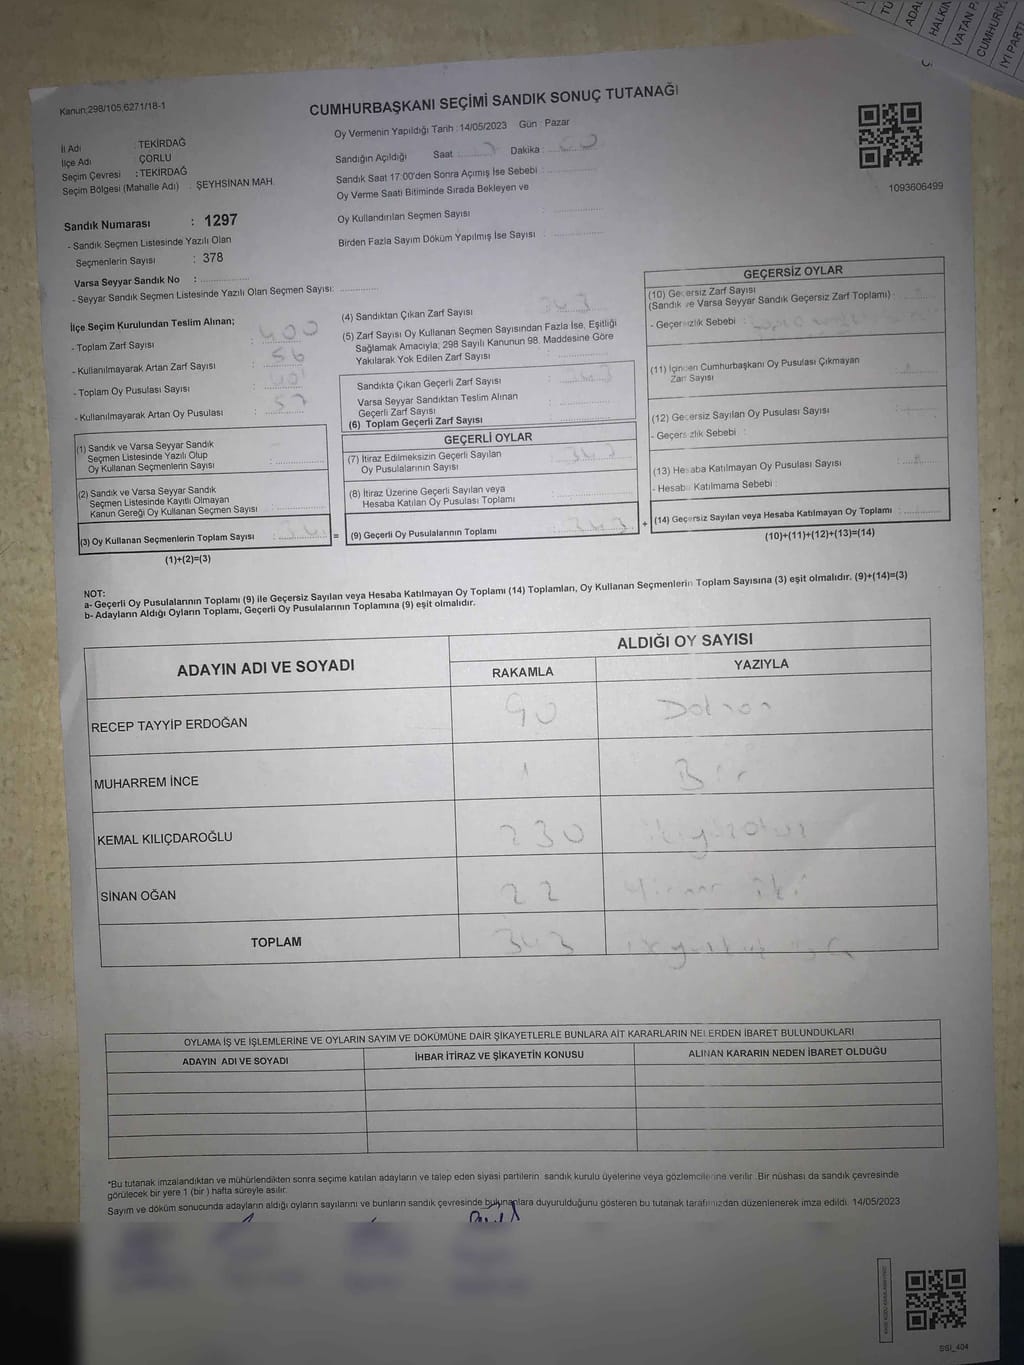 TÜ
ADAL
HALKIN
VATAN P
CUMHURİY
İYİ PARTİ
Kanun:298/105,6271/18-1
CUMHURBAŞKANI SEÇİMİ SANDIK SONUÇ TUTANAĞI
Oy Vermenin Yapıldığı Tarih :14/05/2023 Gün : Pazar
İl Adı : TEKİRDAĞ
İlçe Adı : ÇORLU
Seçim Çevresi : TEKİRDAĞ
Seçim Bölgesi (Mahalle Adı) : ŞEYHSİNAN MAH.
Sandığın Açıldığı Saat : Dakika :
Sandık Saat 17:00'den Sonra Açımış İse Sebebi :
Oy Verme Saati Bitiminde Sırada Bekleyen ve
Oy Kullandırılan Seçmen Sayısı :
Birden Fazla Sayım Döküm Yapılmış İse Sayısı :
1093606499
Sandık Numarası : 1297
- Sandık Seçmen Listesinde Yazılı Olan
Seçmenlerin Sayısı : 378
Varsa Seyyar Sandık No :
- Seyyar Sandık Seçmen Listesinde Yazılı Olan Seçmen Sayısı:
İlçe Seçim Kurulundan Teslim Alınan;
- Toplam Zarf Sayısı : 400
- Kullanılmayarak Artan Zarf Sayısı : 56
- Toplam Oy Pusulası Sayısı :
- Kullanılmayarak Artan Oy Pusulası : 57
(1) Sandık ve Varsa Seyyar Sandık
Seçmen Listesinde Yazılı Olup
Oy Kullanan Seçmenlerin Sayısı :
(2) Sandık ve Varsa Seyyar Sandık
Seçmen Listesinde Kayıtlı Olmayan
Kanun Gereği Oy Kullanan Seçmen Sayısı :
(3) Oy Kullanan Seçmenlerin Toplam Sayısı :
(1)+(2)=(3)
=
(4) Sandıktan Çıkan Zarf Sayısı : 343
(5) Zarf Sayısı Oy Kullanan Seçmen Sayısından Fazla İse, Eşitliği
Sağlamak Amacıyla, 298 Sayılı Kanunun 98. Maddesine Göre
Yakılarak Yok Edilen Zarf Sayısı :
Sandıkta Çıkan Geçerli Zarf Sayısı : 343
Varsa Seyyar Sandıktan Teslim Alınan
Geçerli Zarf Sayısı :
(6) Toplam Geçerli Zarf Sayısı :
GEÇERLİ OYLAR
(7) İtiraz Edilmeksizin Geçerli Sayılan
Oy Pusulalarının Sayısı : 343
(8) İtiraz Üzerine Geçerli Sayılan veya
Hesaba Katılan Oy Pusulası Toplamı :
(9) Geçerli Oy Pusulalarının Toplamı : 343
+
GEÇERSİZ OYLAR
(10) Geçersiz Zarf Sayısı
(Sandık ve Varsa Seyyar Sandık Geçersiz Zarf Toplamı) :
- Geçersizlik Sebebi :
(11) İçinden Cumhurbaşkanı Oy Pusulası Çıkmayan
Zarf Sayısı :
(12) Geçersiz Sayılan Oy Pusulası Sayısı :
- Geçersizlik Sebebi :
(13) Hesaba Katılmayan Oy Pusulası Sayısı :
- Hesaba Katılmama Sebebi :
(14) Geçersiz Sayılan veya Hesaba Katılmayan Oy Toplamı :
(10)+(11)+(12)+(13)=(14)
NOT:
a- Geçerli Oy Pusulalarının Toplamı (9) ile Geçersiz Sayılan veya Hesaba Katılmayan Oy Toplamı (14) Toplamları, Oy Kullanan Seçmenlerin Toplam Sayısına (3) eşit olmalıdır. (9)+(14)=(3)
b- Adayların Aldığı Oyların Toplamı, Geçerli Oy Pusulalarının Toplamına (9) eşit olmalıdır.
ADAYIN ADI VE SOYADI
ALDIĞI OY SAYISI
RAKAMLA YAZIYLA
RECEP TAYYİP ERDOĞAN 90 Doksan
MUHARREM İNCE 1 Bir
KEMAL KILIÇDAROĞLU 230 ikiyüzotuz
SİNAN OĞAN 22 Yirmi iki
TOPLAM 343
OYLAMA İŞ VE İŞLEMLERİNE VE OYLARIN SAYIM VE DÖKÜMÜNE DAİR ŞİKAYETLERLE BUNLARA AİT KARARLARIN NELERDEN İBARET BULUNDUKLARI
ADAYIN ADI VE SOYADI İHBAR İTİRAZ VE ŞİKAYETİN KONUSU ALINAN KARARIN NEDEN İBARET OLDUĞU
*Bu tutanak imzalandıktan ve mühürlendikten sonra seçime katılan adayların ve talep eden siyasi partilerin sandık kurulu üyelerine veya gözlemcilerine verilir. Bir nüshası da sandık çevresinde
görülecek bir yere 1 (bir ) hafta süreyle asılır.
Sayım ve döküm sonucunda adayların aldığı oyların sayılarını ve bunların sandık çevresinde bulunanlara duyurulduğunu gösteren bu tutanak tarafımızdan düzenlenerek imza edildi. 14/05/2023
SSI_404